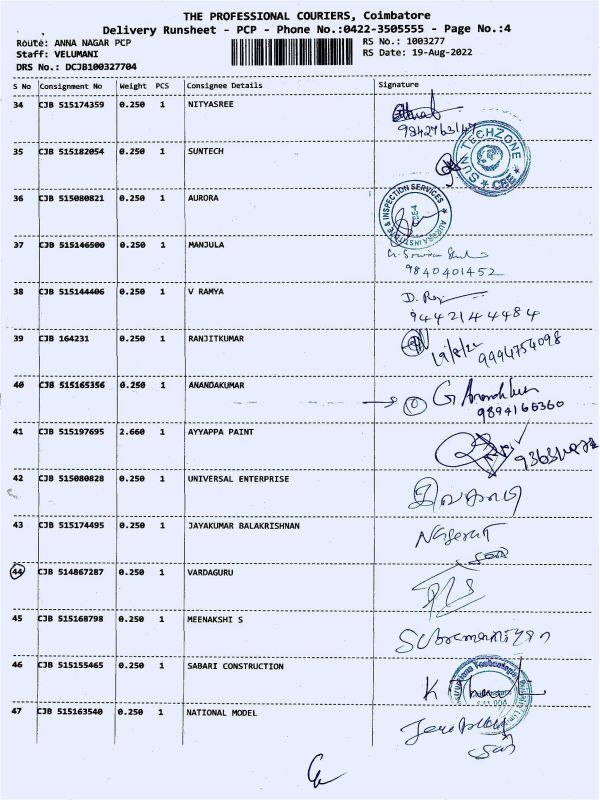 THE PROFESSIONAL COURIERS, Coimbatore
Delivery Runsheet - PCP - Phone No.:0422-3505555 - Page No.:4
Route: ANNA NAGAR PCP RS No.: 1003277
Staff: VELUMANI RS Date: 19-Aug-2022
DRS No.: DCJB100327704
S No Consignment No Weight PCS Consignee Details Signature
34 CJB 515174359 0.250 1 NITYASREE
9842763147
35 CJB 515182054 0.250 1 SUNTECH
SUN TECHZONE CBE
36 CJB 515080821 0.250 1 AURORA
& INSPECTION SERVICES
37 CJB 515146500 0.250 1 MANJULA
9840401452
38 CJB 515144406 0.250 1 V RAMYA
9442144484
39 CJB 164231 0.250 1 RANJITKUMAR
19/8/22 9994754098
40 CJB 515165356 0.250 1 ANANDAKUMAR
9894166360
41 CJB 515197695 2.660 1 AYYAPPA PAINT
42 CJB 515080828 0.250 1 UNIVERSAL ENTERPRISE
43 CJB 515174495 0.250 1 JAYAKUMAR BALAKRISHNAN
44 CJB 514867287 0.250 1 VARDAGURU
45 CJB 515168798 0.250 1 MEENAKSHI S
46 CJB 515155465 0.250 1 SABARI CONSTRUCTION
47 CJB 515163540 0.250 1 NATIONAL MODEL